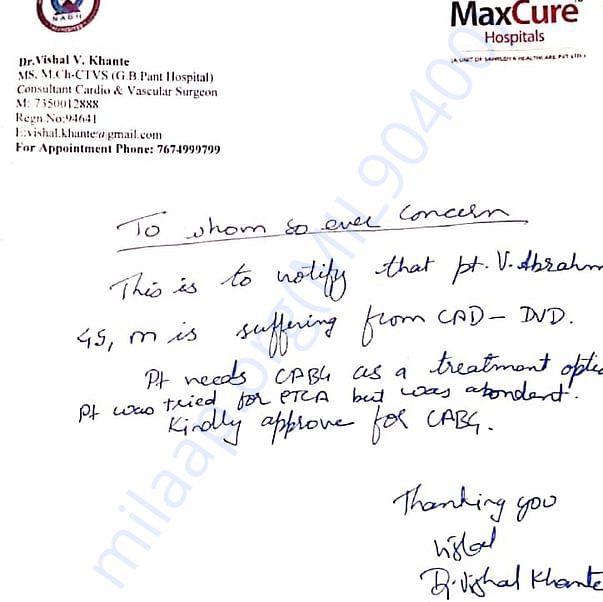 NABH
MaxCure
Hospitals
(A UNIT OF SAHRUDAYA HEALTHCARE PVT LTD.)
Dr.Vishal V. Khante
MS. M.Ch-CTVS (G.B.Pant Hospital)
Consultant Cardio & Vascular Surgeon
M: 7350012888
Regn.No:94641
E:vishal.khante@gmail.com
For Appointment Phone: 7674999799
To whom so ever concern
This is to notify that pt. V. Abraham
45, m is suffering from CAD - DVD.
Pt needs CABG as a treatment optio
Pt was tried for PTCA but was abondent.
Kindly approve for CABG.
Thanking you
Vishal
Dr. Vishal Khante
milaap.org(MIL_90400